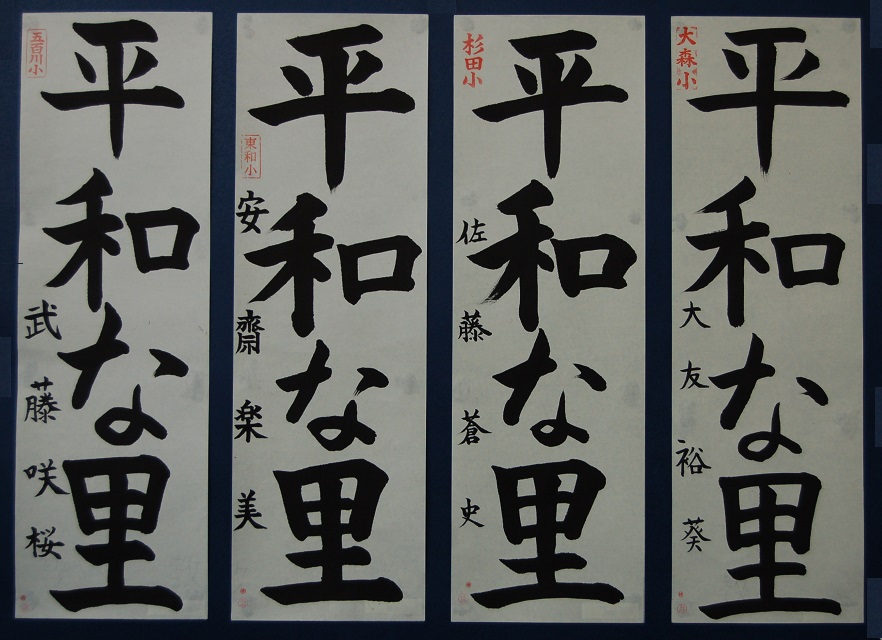 大森小
平和な里
大友裕葵
杉田小
平和な里
佐藤蒼史
東和小
平和な里
安齋楽美
五百川小
平和な里
武藤咲桜